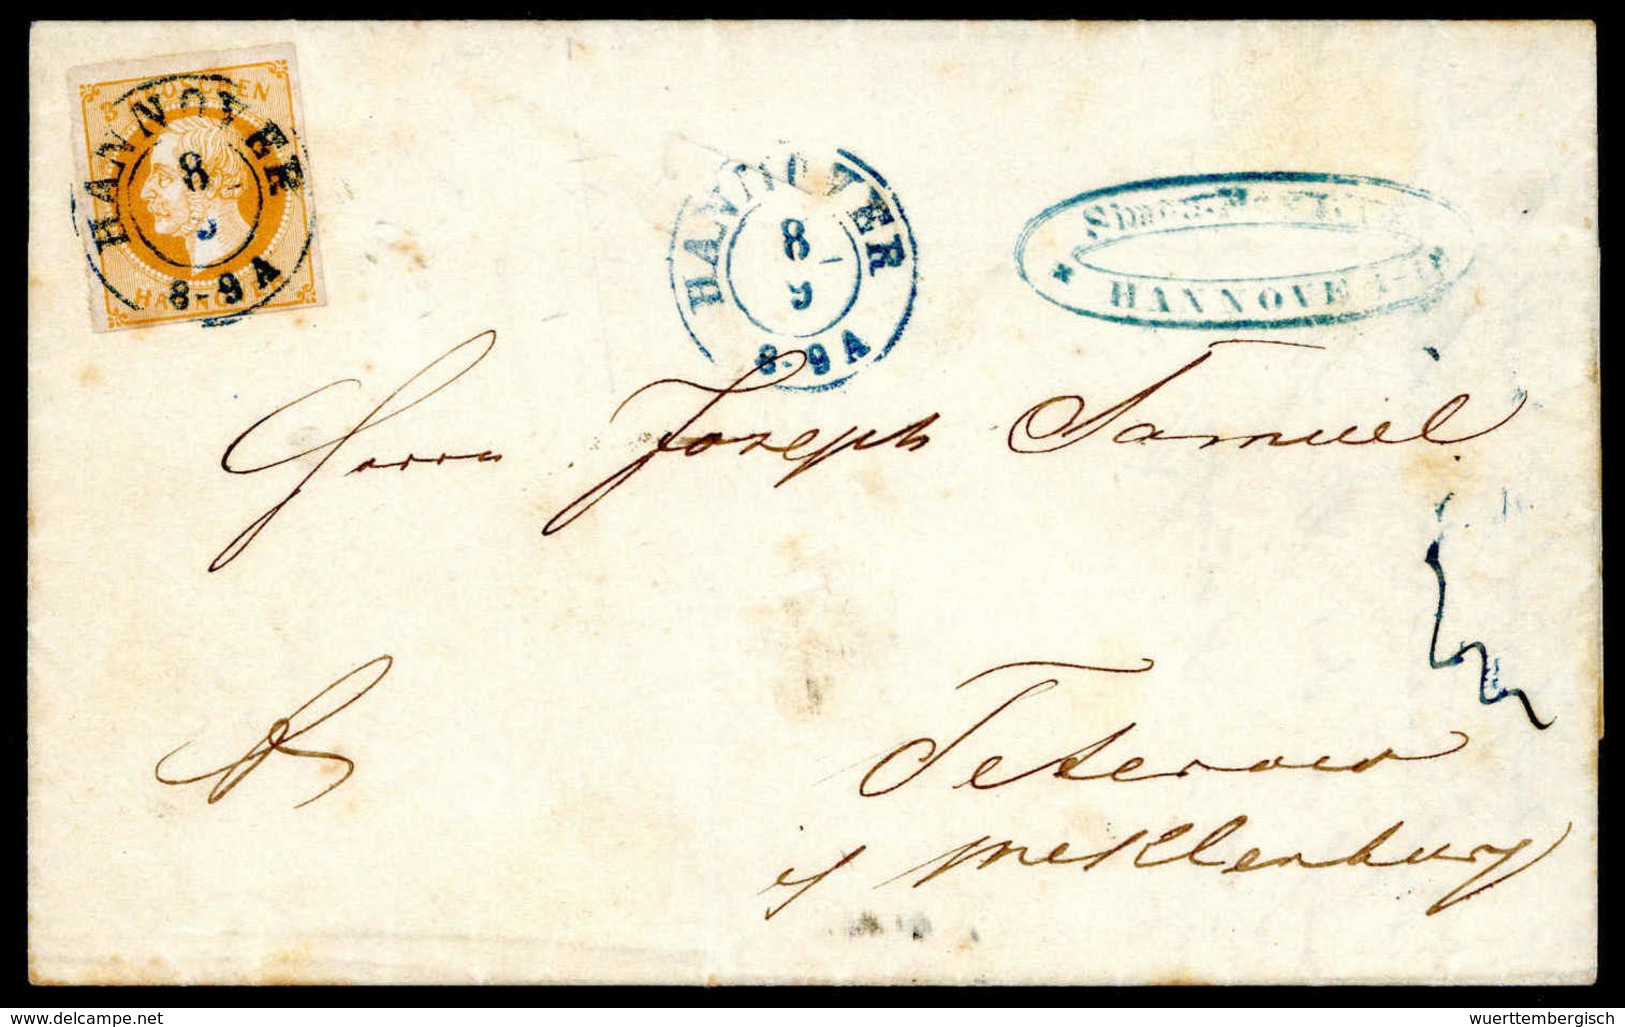 HANNOVER
8
9
8-9A
HANNOVER
8
9
8-9A
HANNOVE
Herrn Joseph Samuel
Teterow
i/ Meklenburg
www.delcampe.net
wuerttembergisch